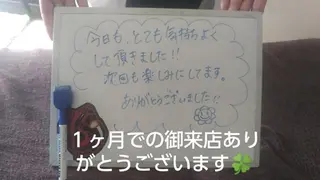 今日も、とても気持ちよく
して頂きました!!
次回も楽しみにしてます。
ありがとうございました!!
1ヶ月での御来店あり
がとうございます🍀